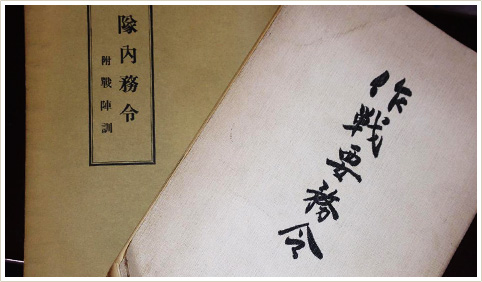 隊内務令
附戰陣訓
作戦要務令